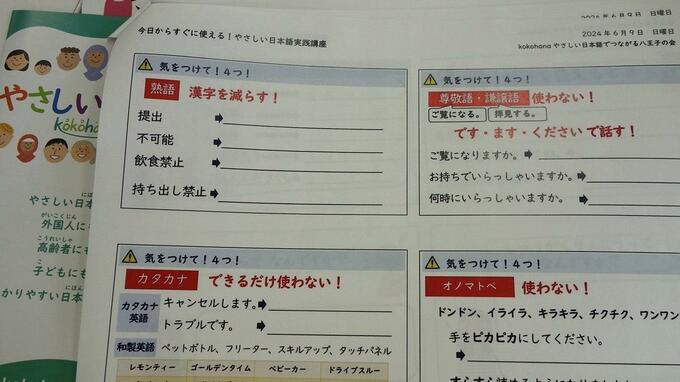 2024年6月9日 日曜日
今日からすぐに使える！やさしい日本語実践講座
2024年6月9日 日曜日
kokohana やさしい日本語でつながる八王子の会
気をつけて！4つ！
熟語 漢字を減らす！
提出
不可能
飲食禁止
持ち出し禁止
気をつけて！4つ！
尊敬語・謙譲語 使わない！
ご覧になる。 拝見する。
です・ます・くださいで話す！
ご覧になりますか。
お持ちでいらっしゃいますか。
何時にいらっしゃいますか。
気をつけて！4つ！
カタカナ できるだけ使わない！
カタカナ英語
キャンセルします。
トラブルです。
和製英語 ペットボトル、フリーター、スキルアップ、タッチパネル
レモンティー ゴールデンタイム ベビーカー ドライブスルー
気をつけて！4つ！
オノマトペ 使わない！
ドンドン、イライラ、キラキラ、チクチク、ワンワン
手をピカピカにしてください。
やさしい
kokohana
やさしい日本
にほ
外国人に
がいこくじん
高齢者にも
こうれいしゃ
子どもにも
こ
かりやすい日本
にほん